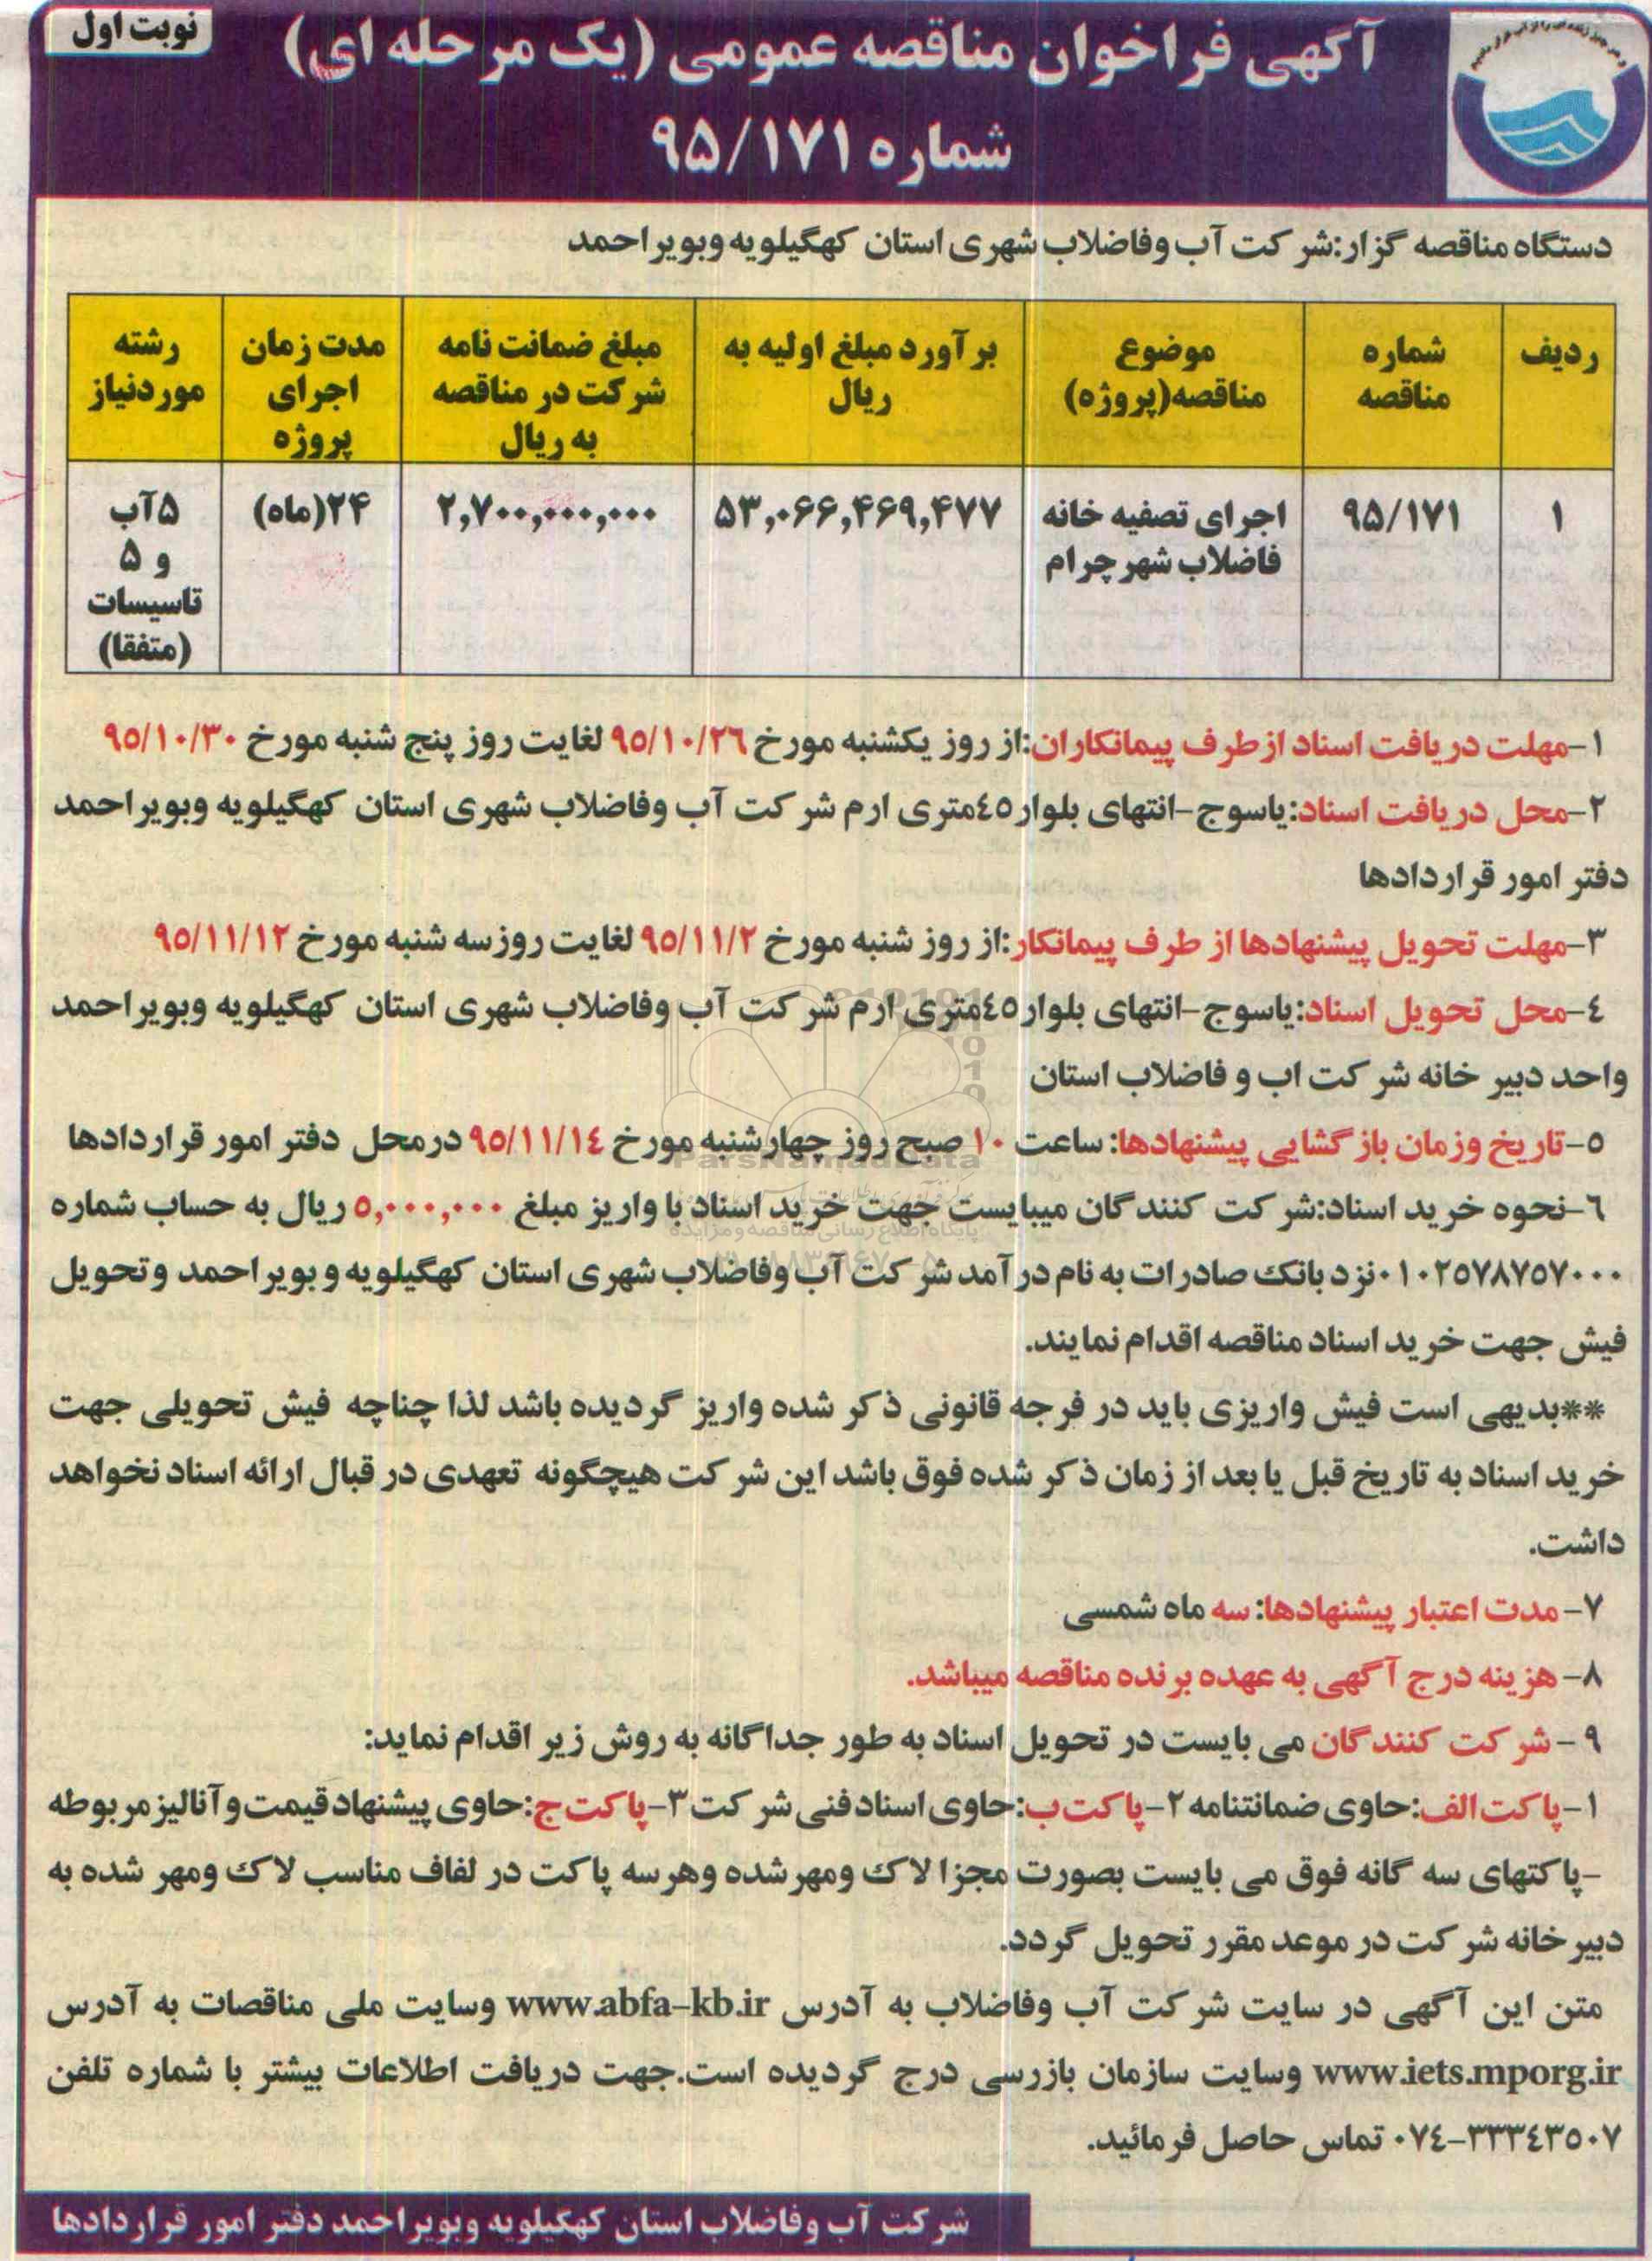 نوبت اول
آگهی فراخوان مناقصه عمومی (یک مرحله ای)
شماره ۹۵/۱۷۱
دستگاه مناقصه گزار:شرکت آب وفاضلاب شهری استان کهگیلویه وبویراحمد
ردیف
شماره
مناقصه
موضوع
مناقصه(پروژه)
برآورد مبلغ اولیه به
ریال
مبلغ ضمانت نامه
شرکت در مناقصه
به ریال
مدت زمان
اجرای
پروژه
رشته
موردنیاز
۱
۹۵/۱۷۱
اجرای تصفیه خانه
فاضلاب شهر چرام
۵۳,۰۶۶,۴۶۹,۴۷۷
۲,۷۰۰,۰۰۰,۰۰۰
۲۴(ماه)
۵آب
و ۵
تاسیسات
(متفقا)
۱-مهلت دریافت اسناد ازطرف پیمانکاران:از روز یکشنبه مورخ ۹۵/۱۰/۲۶ لغایت روز پنج شنبه مورخ ۹۵/۱۰/۳۰
۲-محل دریافت اسناد:یاسوج-انتهای بلوار٤٥متری ارم شرکت آب وفاضلاب شهری استان کهگیلویه وبویراحمد
دفتر امور قراردادها
۳-مهلت تحویل پیشنهادها از طرف پیمانکار:از روز شنبه مورخ ۹۵/۱۱/۲ لغایت روزسه شنبه مورخ ۹۵/۱۱/۱۲
٤-محل تحویل اسناد:یاسوج-انتهای بلوار٤٥متری ارم شرکت آب وفاضلاب شهری استان کهگیلویه وبویراحمد
واحد دبیر خانه شرکت اب و فاضلاب استان
٥-تاریخ وزمان بازگشایی پیشنهادها: ساعت ۱۰ صبح روز چهارشنبه مورخ ۹٥/۱۱/۱٤ درمحل دفتر امور قراردادها
٦-نحوه خرید اسناد:شرکت کنندگان میبایست جهت خرید اسناد با واریز مبلغ ٥,۰۰۰,۰۰۰ ریال به حساب شماره
۰۱۰۲٥۷۸۷٥۷۰۰۰نزد بانک صادرات به نام درآمد شرکت آب وفاضلاب شهری استان کهگیلویه و بویراحمد وتحویل
فیش جهت خرید اسناد مناقصه اقدام نمایند.
**بدیهی است فیش واریزی باید در فرجه قانونی ذکر شده واریز گردیده باشد لذا چناچه فیش تحویلی جهت
خرید اسناد به تاریخ قبل یا بعد از زمان ذکر شده فوق باشد این شرکت هیچگونه تعهدی در قبال ارائه اسناد نخواهد
داشت.
۷- مدت اعتبار پیشنهادها: سه ماه شمسی
۸- هزینه درج آگهی به عهده برنده مناقصه میباشد.
۹- شرکت کنندگان می بایست در تحویل اسناد به طور جداگانه به روش زیر اقدام نماید:
۱-پاکت الف:حاوی ضمانتنامه ۲-پاکت ب:حاوی اسناد فنی شرکت ۳-پاکت ج:حاوی پیشنهاد قیمت و آنالیز مربوطه
-پاکتهای سه گانه فوق می بایست بصورت مجزا لاک ومهر شده وهرسه پاکت در لفاف مناسب لاک ومهر شده به
دبیرخانه شرکت در موعد مقرر تحویل گردد.
متن این آگهی در سایت شرکت آب وفاضلاب به آدرس www.abfa-kb.ir وسایت ملی مناقصات به آدرس
www.iets.mporg.ir وسایت سازمان بازرسی درج گردیده است.جهت دریافت اطلاعات بیشتر با شماره تلفن
۰۷٤-۳۳۳٤۳٥۰۷ تماس حاصل فرمائید.
شرکت آب وفاضلاب استان کهگیلویه وبویراحمد دفتر امور قراردادها
ParsNamadData
پایگاه اطلاع رسانی مناقصه و مزایده